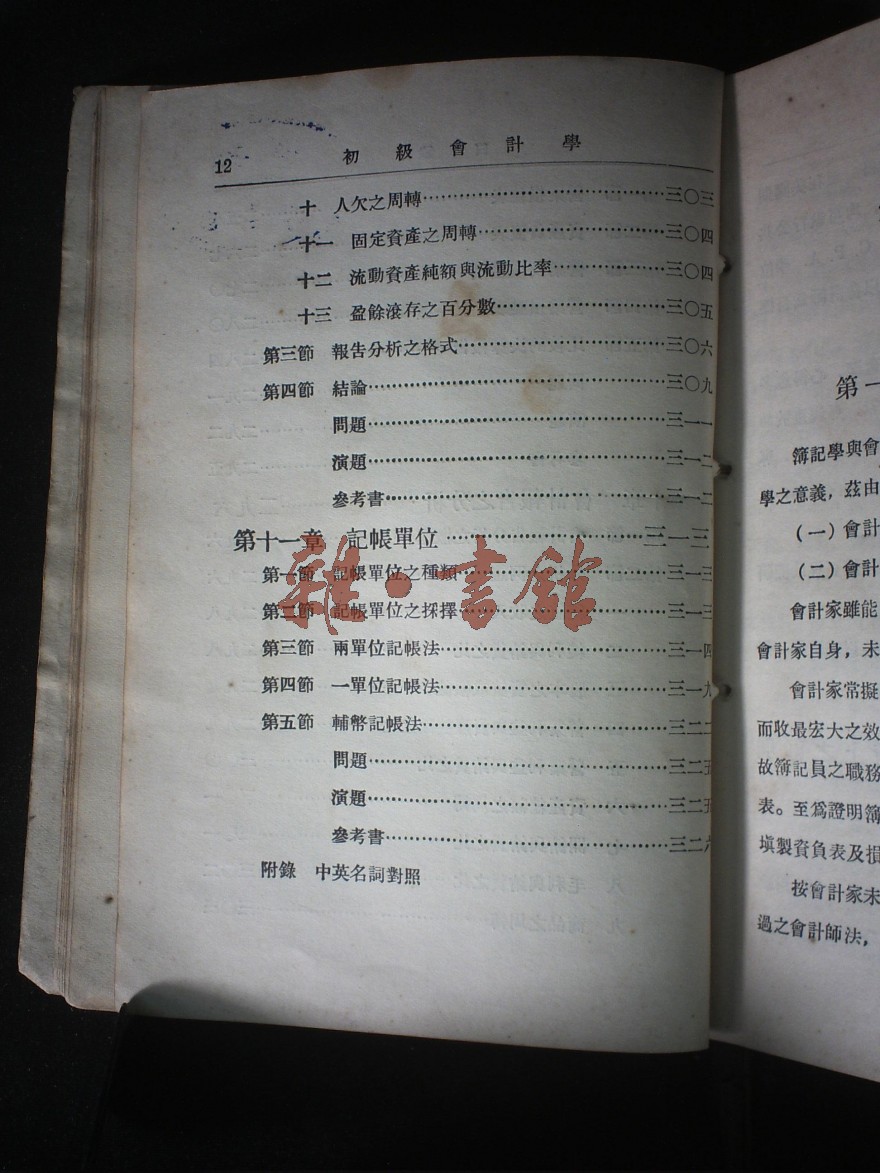 12 初級會計學
十 人欠之周轉……三〇三
十一 固定資產之周轉……三〇四
十二 流動資產純額與流動比率……三〇四
十三 盈餘滾存之百分數……三〇五
第三節 報告分析之格式……三〇六
第四節 結論……三〇九
問題……三一一
演題……三一二
參考書……三一二
第十一章 記帳單位……三一三
第一節 記帳單位之種類……三一三
第二節 記帳單位之採擇……三一三
第三節 兩單位記帳法……三一四
第四節 一單位記帳法……三一九
第五節 輔幣記帳法……三二二
問題……三二五
演題……三二五
參考書……三二六
附錄 中英名詞對照
雜·書館
第一
簿記學與會
學之意義，茲由
（一）會計
（二）會計
會計家雖能
會計家自身，未
會計家常擬
而收最宏大之效
故簿記員之職務
表。至爲證明簿
塡製資負表及損
按會計家未
過之會計師法，